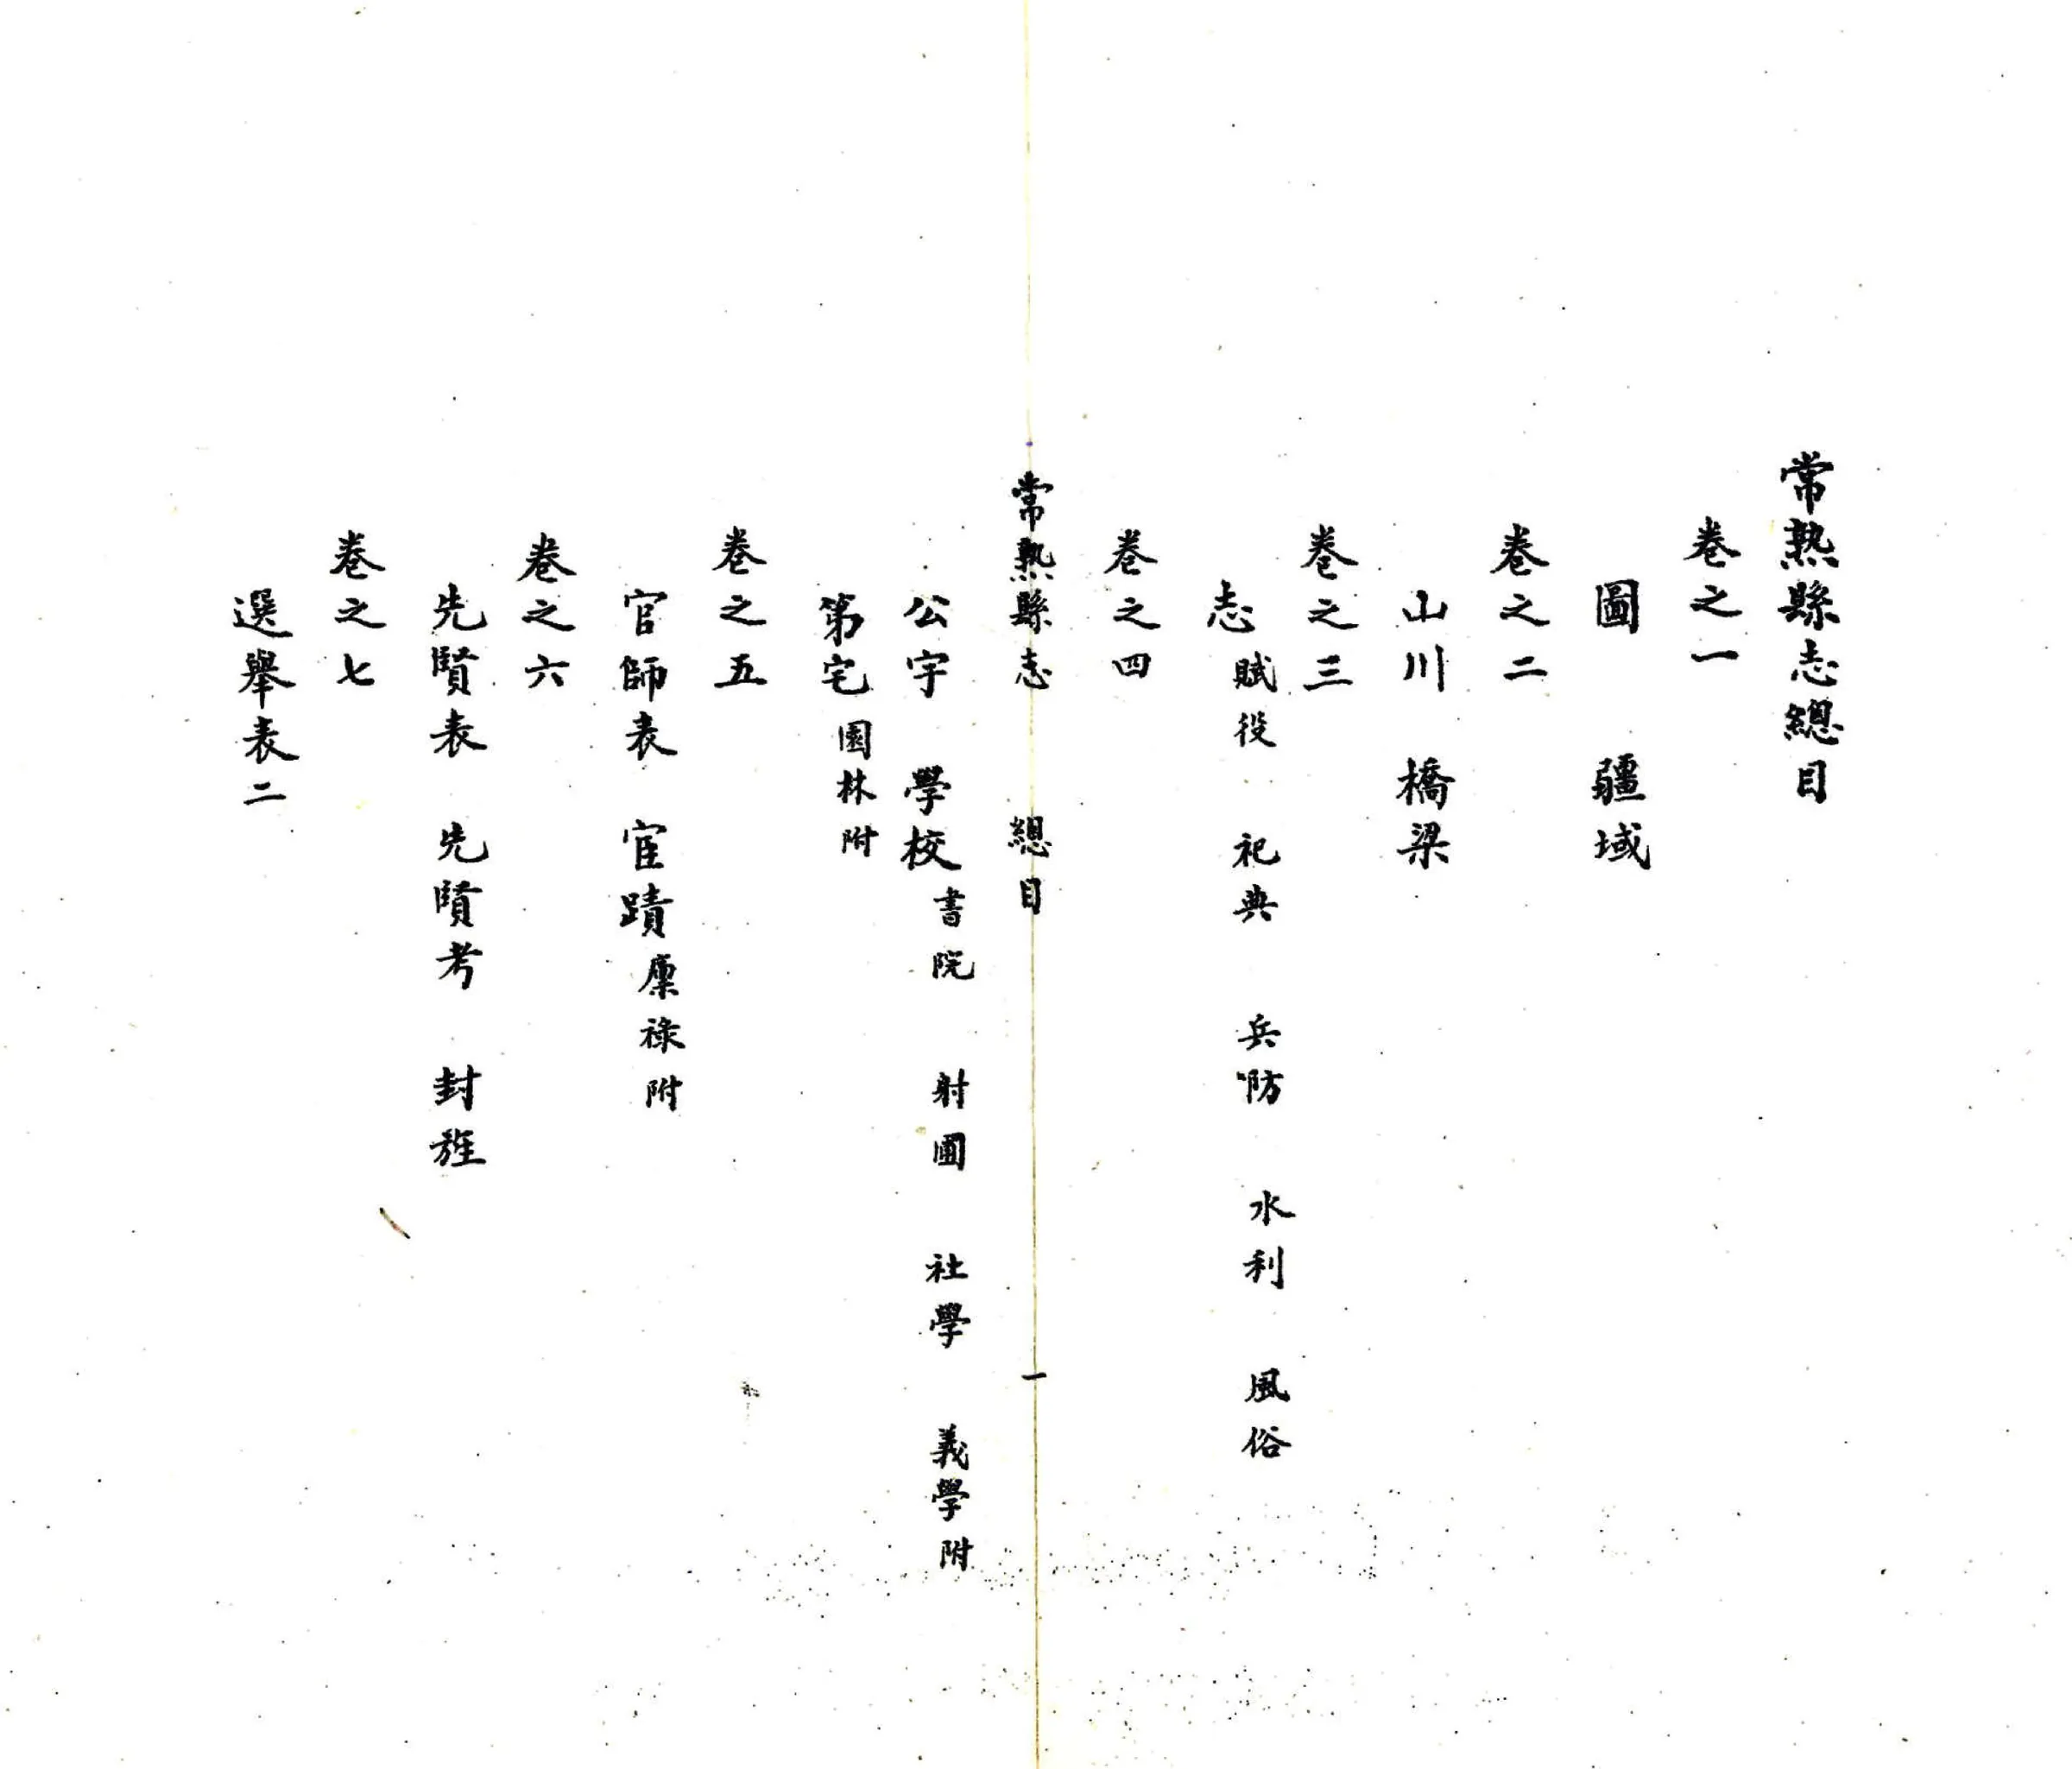 常熟縣志總目
卷之一
圖　疆域
卷之二
山川　橋梁
卷之三
志 賦役　祀典　兵防　水利　風俗
卷之四
常熟縣志　總目　一
公宇　學校 書院　射圃　社學　義學附
第宅 園林附
卷之五
官師表　宦蹟 廩祿附
卷之六
先賢表　先賢考　封旌
卷之七
選舉表二